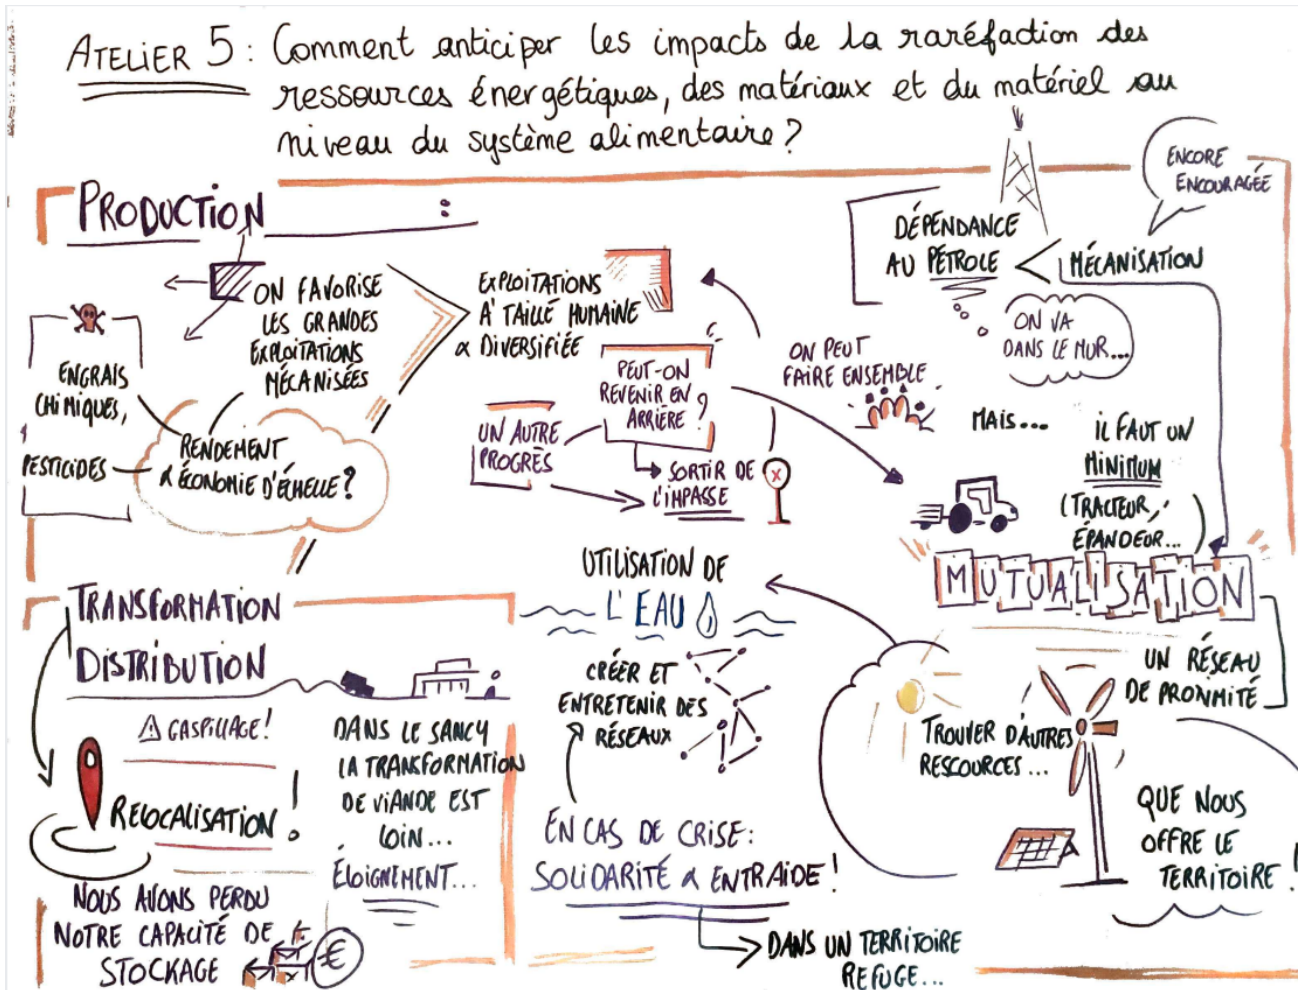 ATELIER 5 : Comment anticiper les impacts de la raréfaction des
ressources énergétiques, des matériaux et du matériel au
niveau du système alimentaire ?
PRODUCTION :
ENGRAIS
CHIMIQUES,
PESTICIDES
ON FAVORISE
LES GRANDES
EXPLOITATIONS
MÉCANISÉES
RENDEMENT
& ÉCONOMIE D'ÉCHELLE ?
EXPLOITATIONS
À TAILLE HUMAINE
& DIVERSIFIÉE
PEUT-ON
REVENIR EN
ARRIÈRE ?
UN AUTRE
PROGRÈS
SORTIR DE
L'IMPASSE
X
DÉPENDANCE
AU PÉTROLE
MÉCANISATION
ENCORE
ENCOURAGÉE
ON VA
DANS LE MUR...
ON PEUT
FAIRE ENSEMBLE
MAIS...
IL FAUT UN
MINIMUM
(TRACTEUR,
ÉPANDEUR...)
MUTUALISATION
UN RÉSEAU
DE PROXIMITÉ
TRANSFORMATION
DISTRIBUTION
GASPILLAGE !
RELOCALISATION !
NOUS AVONS PERDU
NOTRE CAPACITÉ DE
STOCKAGE
€
DANS LE SANCY
LA TRANSFORMATION
DE VIANDE EST
LOIN...
ÉLOIGNEMENT...
UTILISATION DE
L'EAU
CRÉER ET
ENTRETENIR DES
RÉSEAUX
EN CAS DE CRISE :
SOLIDARITÉ & ENTRAIDE !
DANS UN TERRITOIRE
REFUGE...
TROUVER D'AUTRES
RESCOURCES ...
QUE NOUS
OFFRE LE
TERRITOIRE !